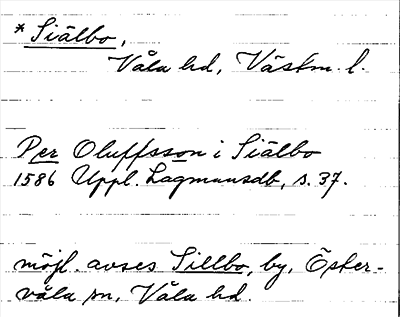 * Siälbo,
Våla hd, Västm. l.
Per Oluffsson i Siälbo
1586 Uppl. Lagmansdb, s. 37.
möjl. avses Sillbo, by, Öster-
våla sn, Våla hd.